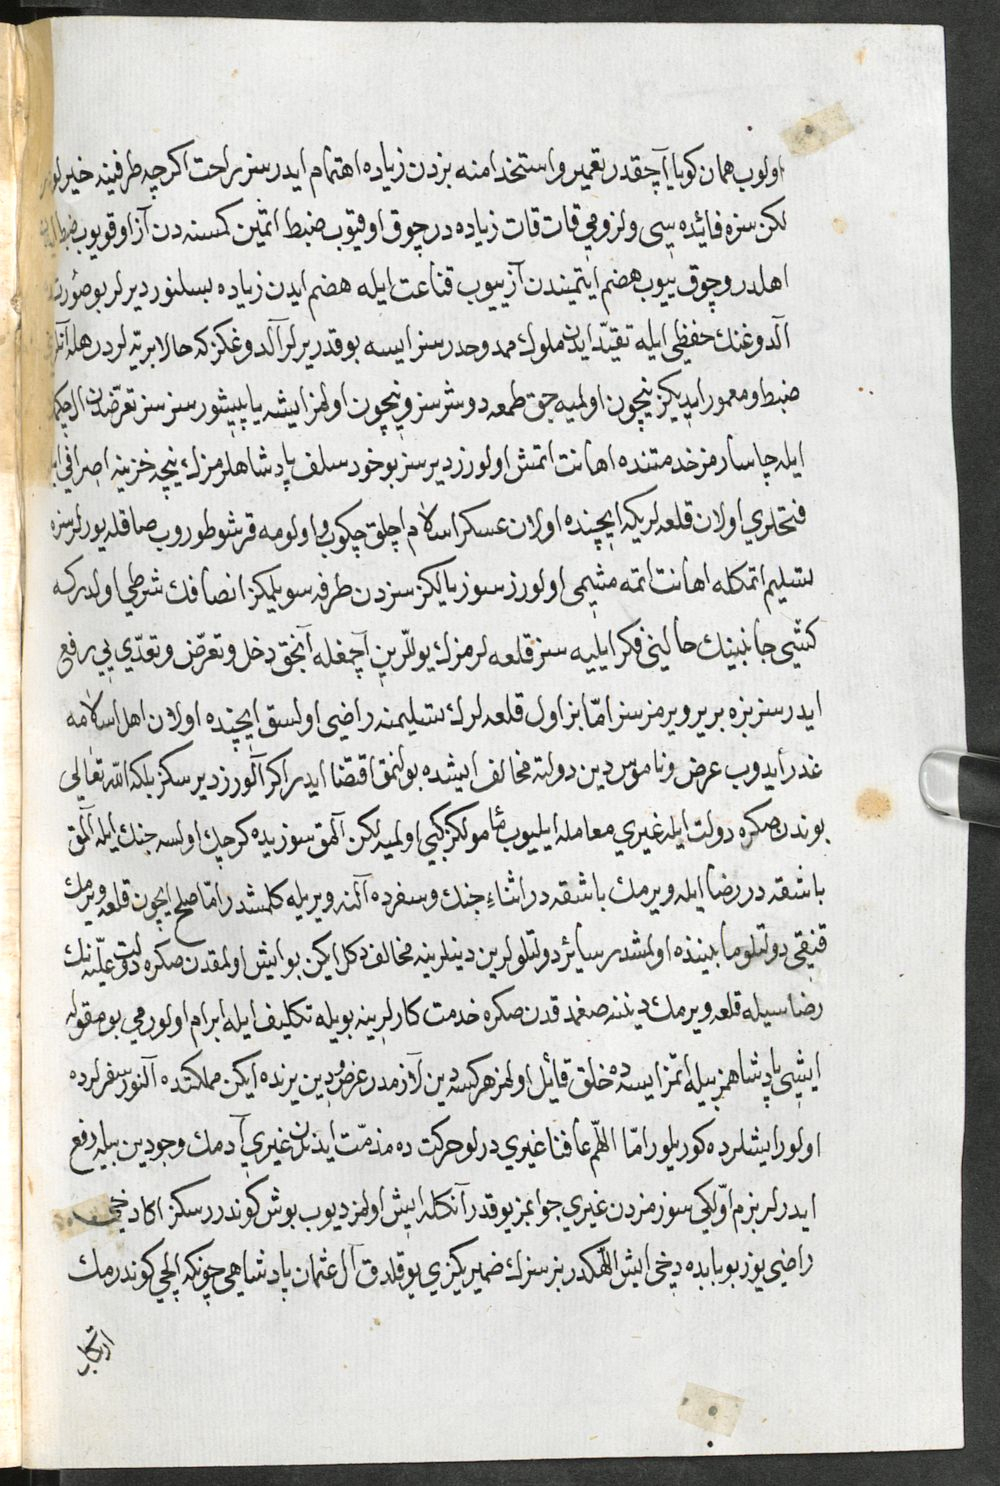 اولوب همان كويا آچقدر تعمير و استخدامنه بزدن زياده اهتمام ايدرسز راحت اكرچه طرفينه خيرلو
لكن سزه فائده سى ولزومى قات قات زياده در چوق اوقيوب ضبط اتمين كمسنه دن آز اوقويوب ضبط
اهلدر و چوق ييوب هضم ايتميندن آز ييوب قناعت ايله هضم ايدن زياده بسلنور ديرلر بو صورت
آلدوغنك حفظى ايله تقيّد ايدن ملوك ممدوحدر سز ايسه بو قدر يرلر آلدوغكز كه حالا بريّه لردر هله
ضبط و معمور ايديكز نيچون اولميه جق طمعه دوشرسز و نيچون اولمز ايشه ياپيشورسز سز تعرّضدن ال چكمك
ايله چاسارمز خدمتنده اهانت اتمش اولورز ديرسز بو خود سلف پادشاهلرمزك نيچه خزينه اصرافى
فتحلرى اولان قلعه لريكه ايچنده اولان عسكر اسلام آچلق چكوب و اولومه قرشو طوروب صاقله يورلر سزه
تسليم اتمكله اهانت اتمه مشيمى اولورز سوز يالكز سزدن طرفه سويلمكز انصافك شرطى اولدر كه
كشى جانبينك حالينى فكر ايليه سز قلعه لرمزك يوللرين آچمغله آنجق دخل و تعرّض و تعدّى يى رفع
ايدرسز بزه برير ويرمزسز امّا بز اول قلعه لرك تسليمنه راضى اولسق ايچنده اولان اهل اسلامه
غدر ايدوب عرض و ناموس دين دولته مخالف ايشده بولنمق اقتضا ايدر اكر آلورز ديرسكز بلكه الله تعالى
بوندن صكره دولت ايله غيرى معامله ايليوب مأمولكز كبى اولميه لكن آلمق سوزيده كرچك اولسه جنك ايله آلمق
باشقه در رضا ايله ويرمك باشقه در اثناء جنك و سفرده آلنه ويريله كلمشدر امّا صلح ايچون قلعه ويرمك
قنقى دولتلو مابيننده اولمشدر سائر دولتلولرين دينلرينه مخالف دكل ايكن بو ايش اولمقدن صكره دولت عليّه نك
رضاسيله قلعه ويرمك ديننه صغمدقدن صكره خدمت كارلرينه بويله تكليف ايله ابرام اولورمى بو مقوله
ايشى پادشاهمز بيله اتمز ايسه ده خلق قائل اولمز هركسه دين لازمدر عرض و دين يرنده ايكن مملكتده آلنور سفرلرده
اولور ايشلرده كوريلور امّا اللّهم عافنا غيرى درلو حركت ده مذمّت ايدندن غيرى آدمك وجودين بيله رفع
ايدرلر بزم اوّلكى سوزمزدن غيرى جوابمز يوقدر آنكله ايش اولمز ديوب بوش كوندررسكز اكا دخى
راضى يوز بو بابده دخى ايش اللّهكدر بز سزك ضميريكزى يوقلدق آل عثمان پادشاهى چونكه ايلچى كوندرمك
ارتكاب